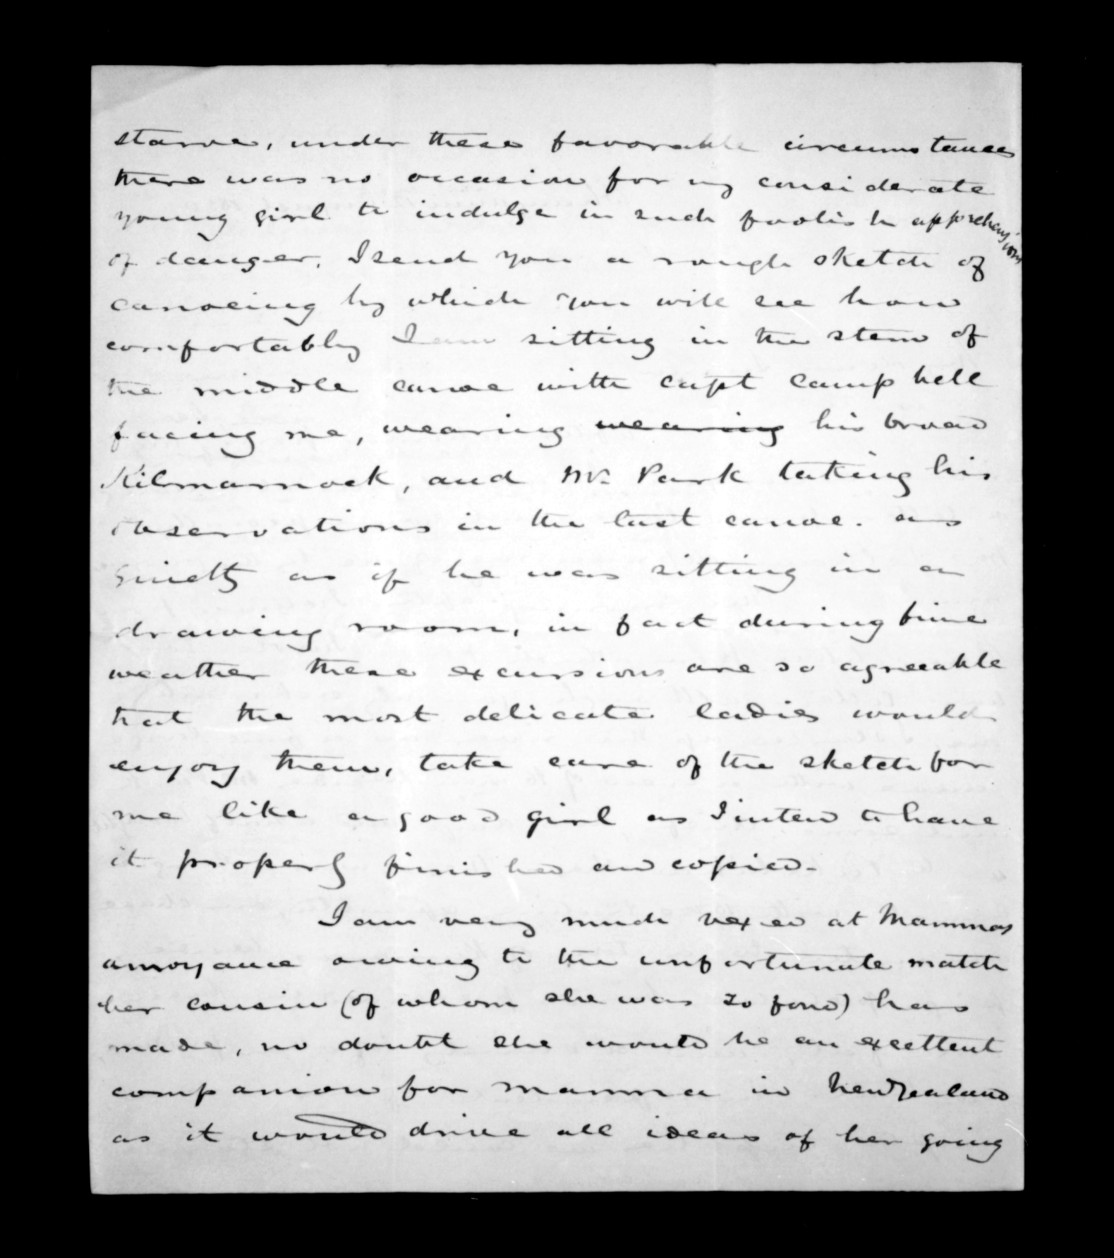 starve, under these favorable circumstances
there was no occasion for my considerate
young girl to indulge in such foolish apprehensions
of danger. I send you a rough sketch of
canoeing by which you will see how
comfortably I am sitting in the stern of
the middle canoe with capt campbell
facing me, wearing wearing his broad
Kilmarnock, and Mr. Park taking his
observations in the last canoe. as
quietly as if he was sitting in a
drawing room, in fact during fine
weather these excursions are so agreeable
that the most delicate ladies would
enjoy them, take care of the sketch for
me like a good girl as I intend to have
it properly finished and copied.
I am very much vexed at Mammas
annoyance owing to the unfortunate match
her cousin (of whom she was so fond) has
made, no doubt she would be an excellent
companion for mamma in New Zealand
as it would drive all ideas of her going